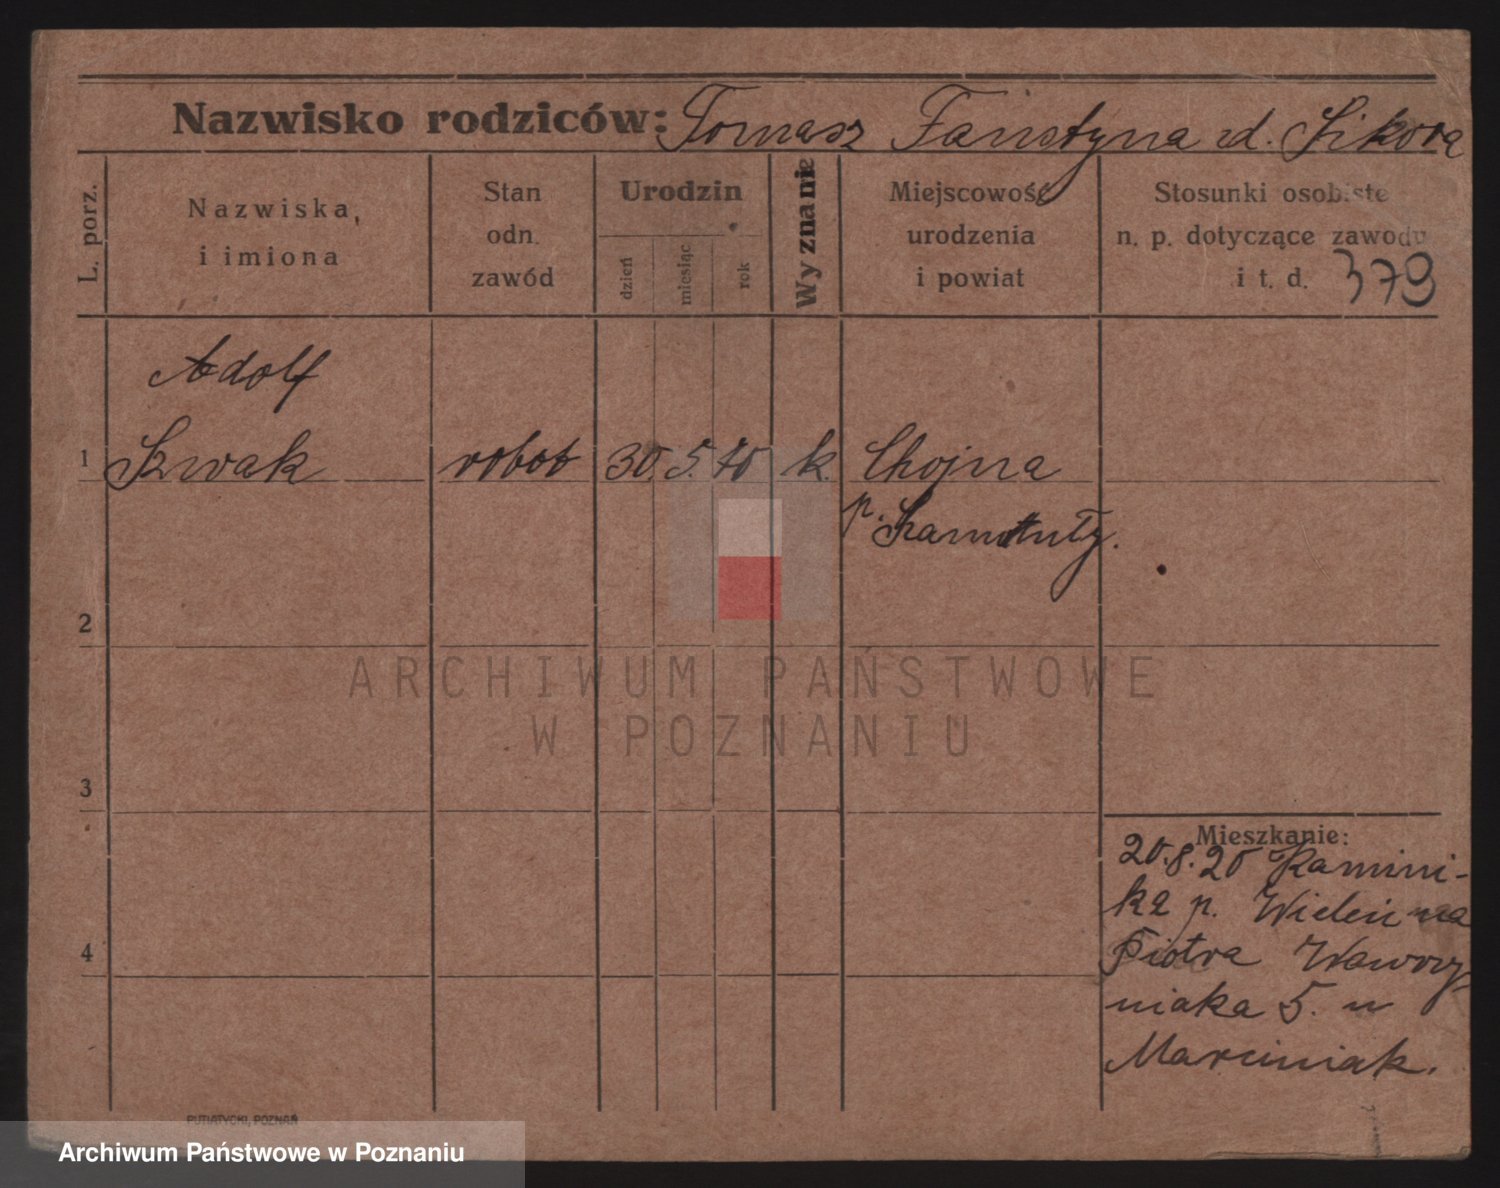 Nazwisko rodziców: Tomasz Faustyna zd. Sikora
L. porz.
Nazwiska, i imiona
Stan odn. zawód
Urodzin
dzień
miesiąc
rok
Wyznanie
Miejscowość urodzenia i powiat
Stosunki osobiste n. p. dotyczące zawodu i t. d.
379
Adolf
1 Szwak robot 30. 5. 70 k. Chojna
p. Szamotuły.
2
3
4
Mieszkanie:
20.8.20 Kamini-
ka p. Wieleń na
Piotra Wawrzy
niaka 5. u
Marciniak.
PUTIATYCKI, POZNAŃ
ARCHIWUM PAŃSTWOWE
W POZNANIU
Archiwum Państwowe w Poznaniu